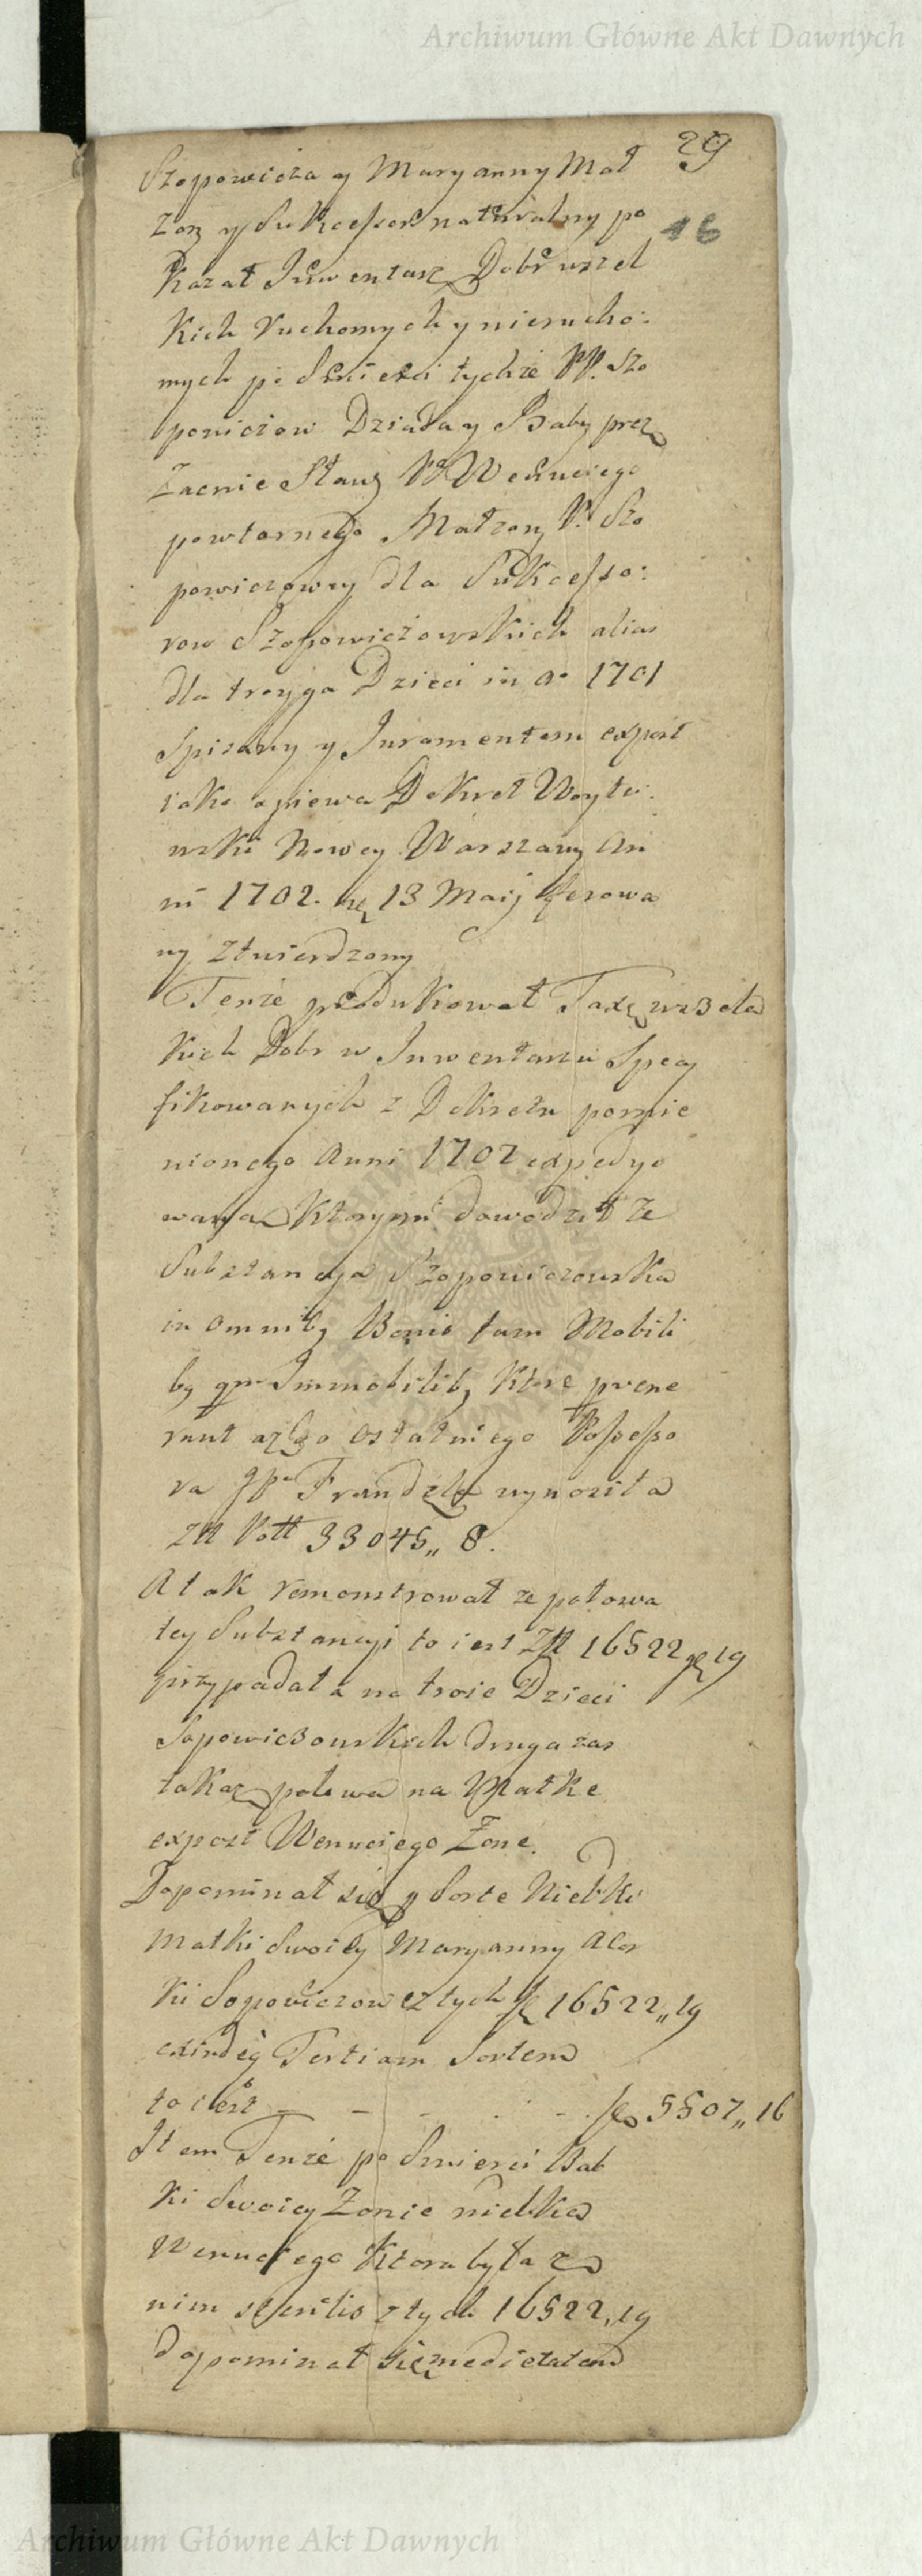 Archiwum Główne Akt Dawnych
29
16
Szopowicza y Maryanny Mał
zon y Sukcessor naturalny po
kazał Inwentarz Dobr wszel
kich ruchomych y nierucho:
mych po Smierci tychże PP. Szo
powiczow Dziada y Baby przez
Zacnie Sław Wenuciego
powtornego Małzon P. Szo
powiczowey dla Sukcesso:
row Szopowiczowskich alias
dla troyga Dzieci in Ao 1701
Spisany y Juramentem expost
iako opiewa Dekret Woyto:
wski Nowey Warszawy An
ni 1702. 13 Maij ferowa
ny ztwierdzony
Tenże produkował Taxę wszela
kich Dobr w Inwentarzu Specy
fikowanych z Dekretu pomie
nionego Anni 1702 expedyo
waną Ktorymi dowodził że
Substancya Szopowiczowska
in omnib9 Bonis tam Mobili
b9 qm Immobilib9 Ktore
az do ostatniego Possesso
ra JP Frandzla wynosiła
Zł Poll 33045,, 8.
A tak remonstrował ze połowa
tey Substancyi to iest Zł 16522 gr 19
przypadała na troie Dzieci
Sopowiczowskich druga zas
takaz połowa na Matke
expost Wenuciego Zone.
Dopominał się y Sorte Niebki
Matki Swoiey Maryanny Cor
ki Sopowiczow z tych f 16522,, 19
exindeq Tertiam Sortem
to iest - - - - - f 5507,, 16
Item Tenże po Smierci Bab
ki Swoiey Zonie niebka
Wenuciego Ktora była z
nim sterilis z tych 16522,, 19
dopominał się medietatem
Archiwum Główne Akt Dawnych